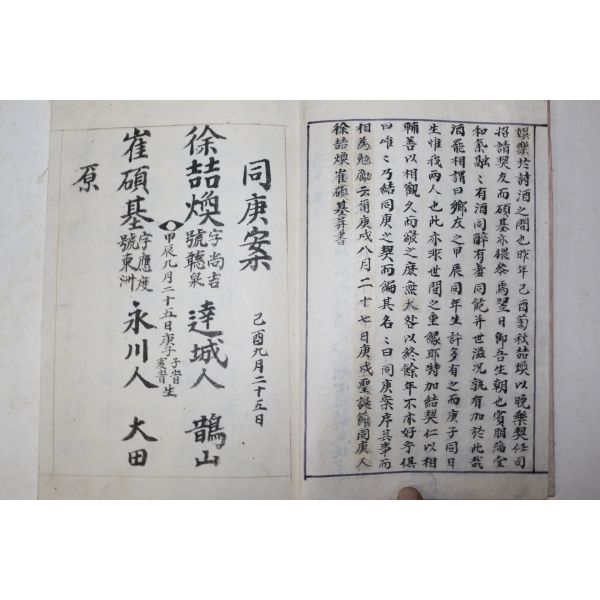 娛樂於詩酒之間也昨年己酉菊秋喆煥以晩樂契任司
招請契友而碩基亦參焉翌日卽吾生朝也賓朋滿堂
和氣融々有酒同醉有羞同飽幷世滋况孰有加於此哉
酒罷相謂曰鄕友之甲辰同年生許多有之而庚子同日
生惟我兩人也此亦非世間之重緣耶特加結契仁以相
輔善以相觀久而敬之庶無大咎以終餘年不亦好乎俱
曰唯々乃結同庚之契而編其名々曰同庚案序其事而
相爲勉勵云爾庚戌八月二十七日庚戌聖誕節同庚人
徐喆煥崔碩基幷書
同庚案 己酉九月二十五日
徐喆煥 字尚吉 號聽泉 達城人 鵲山
甲辰九月二十五日庚子 子時 亥時 生
崔碩基 字應度 號東洲 永川人 大田
原